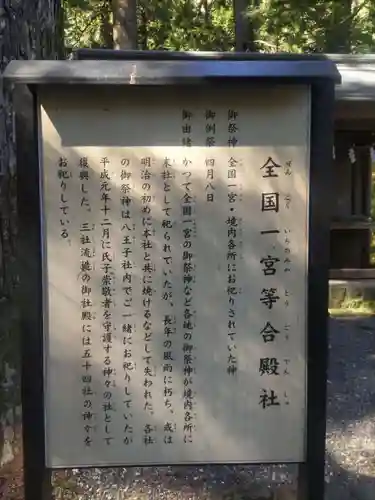 全国一宮等合殿社
ぜんこくいちのみやとうごうでんしゃ
御祭神 全国一宮・境内各所にお祀りされていた神
御例祭 四月八日
御由緒 かつて全国一宮の御祭神など各地の御祭神が境内各所に
末社として祀られていたが、長年の風雨に朽ち、或は
明治の初めに本社と共に焼けるなどして失われた。各社
の御祭神は八王子社内でご一緒にお祀りしていたが
平成元年十二月に氏子崇敬者を守護する神々の社として
復興した。三社流造の御社殿には五十四社の神々を
お祀りしている。